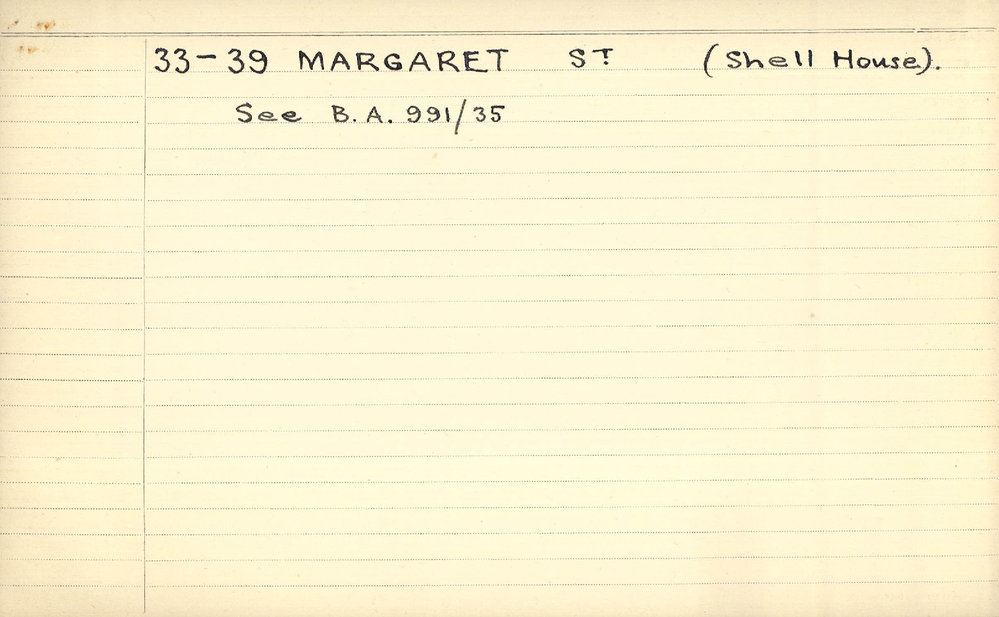 33-39 MARGARET ST (Shell House).
See B.A. 991/35